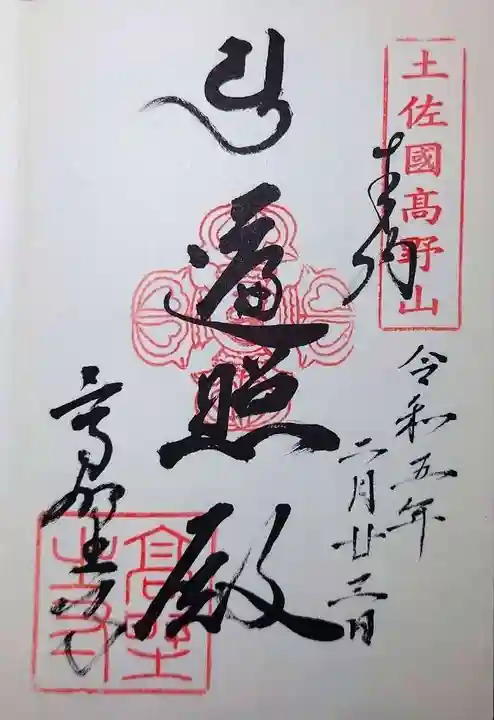 土佐國高野山
奉拝
令和五年
二月廿三日
遍照殿
高野寺
高野寺印